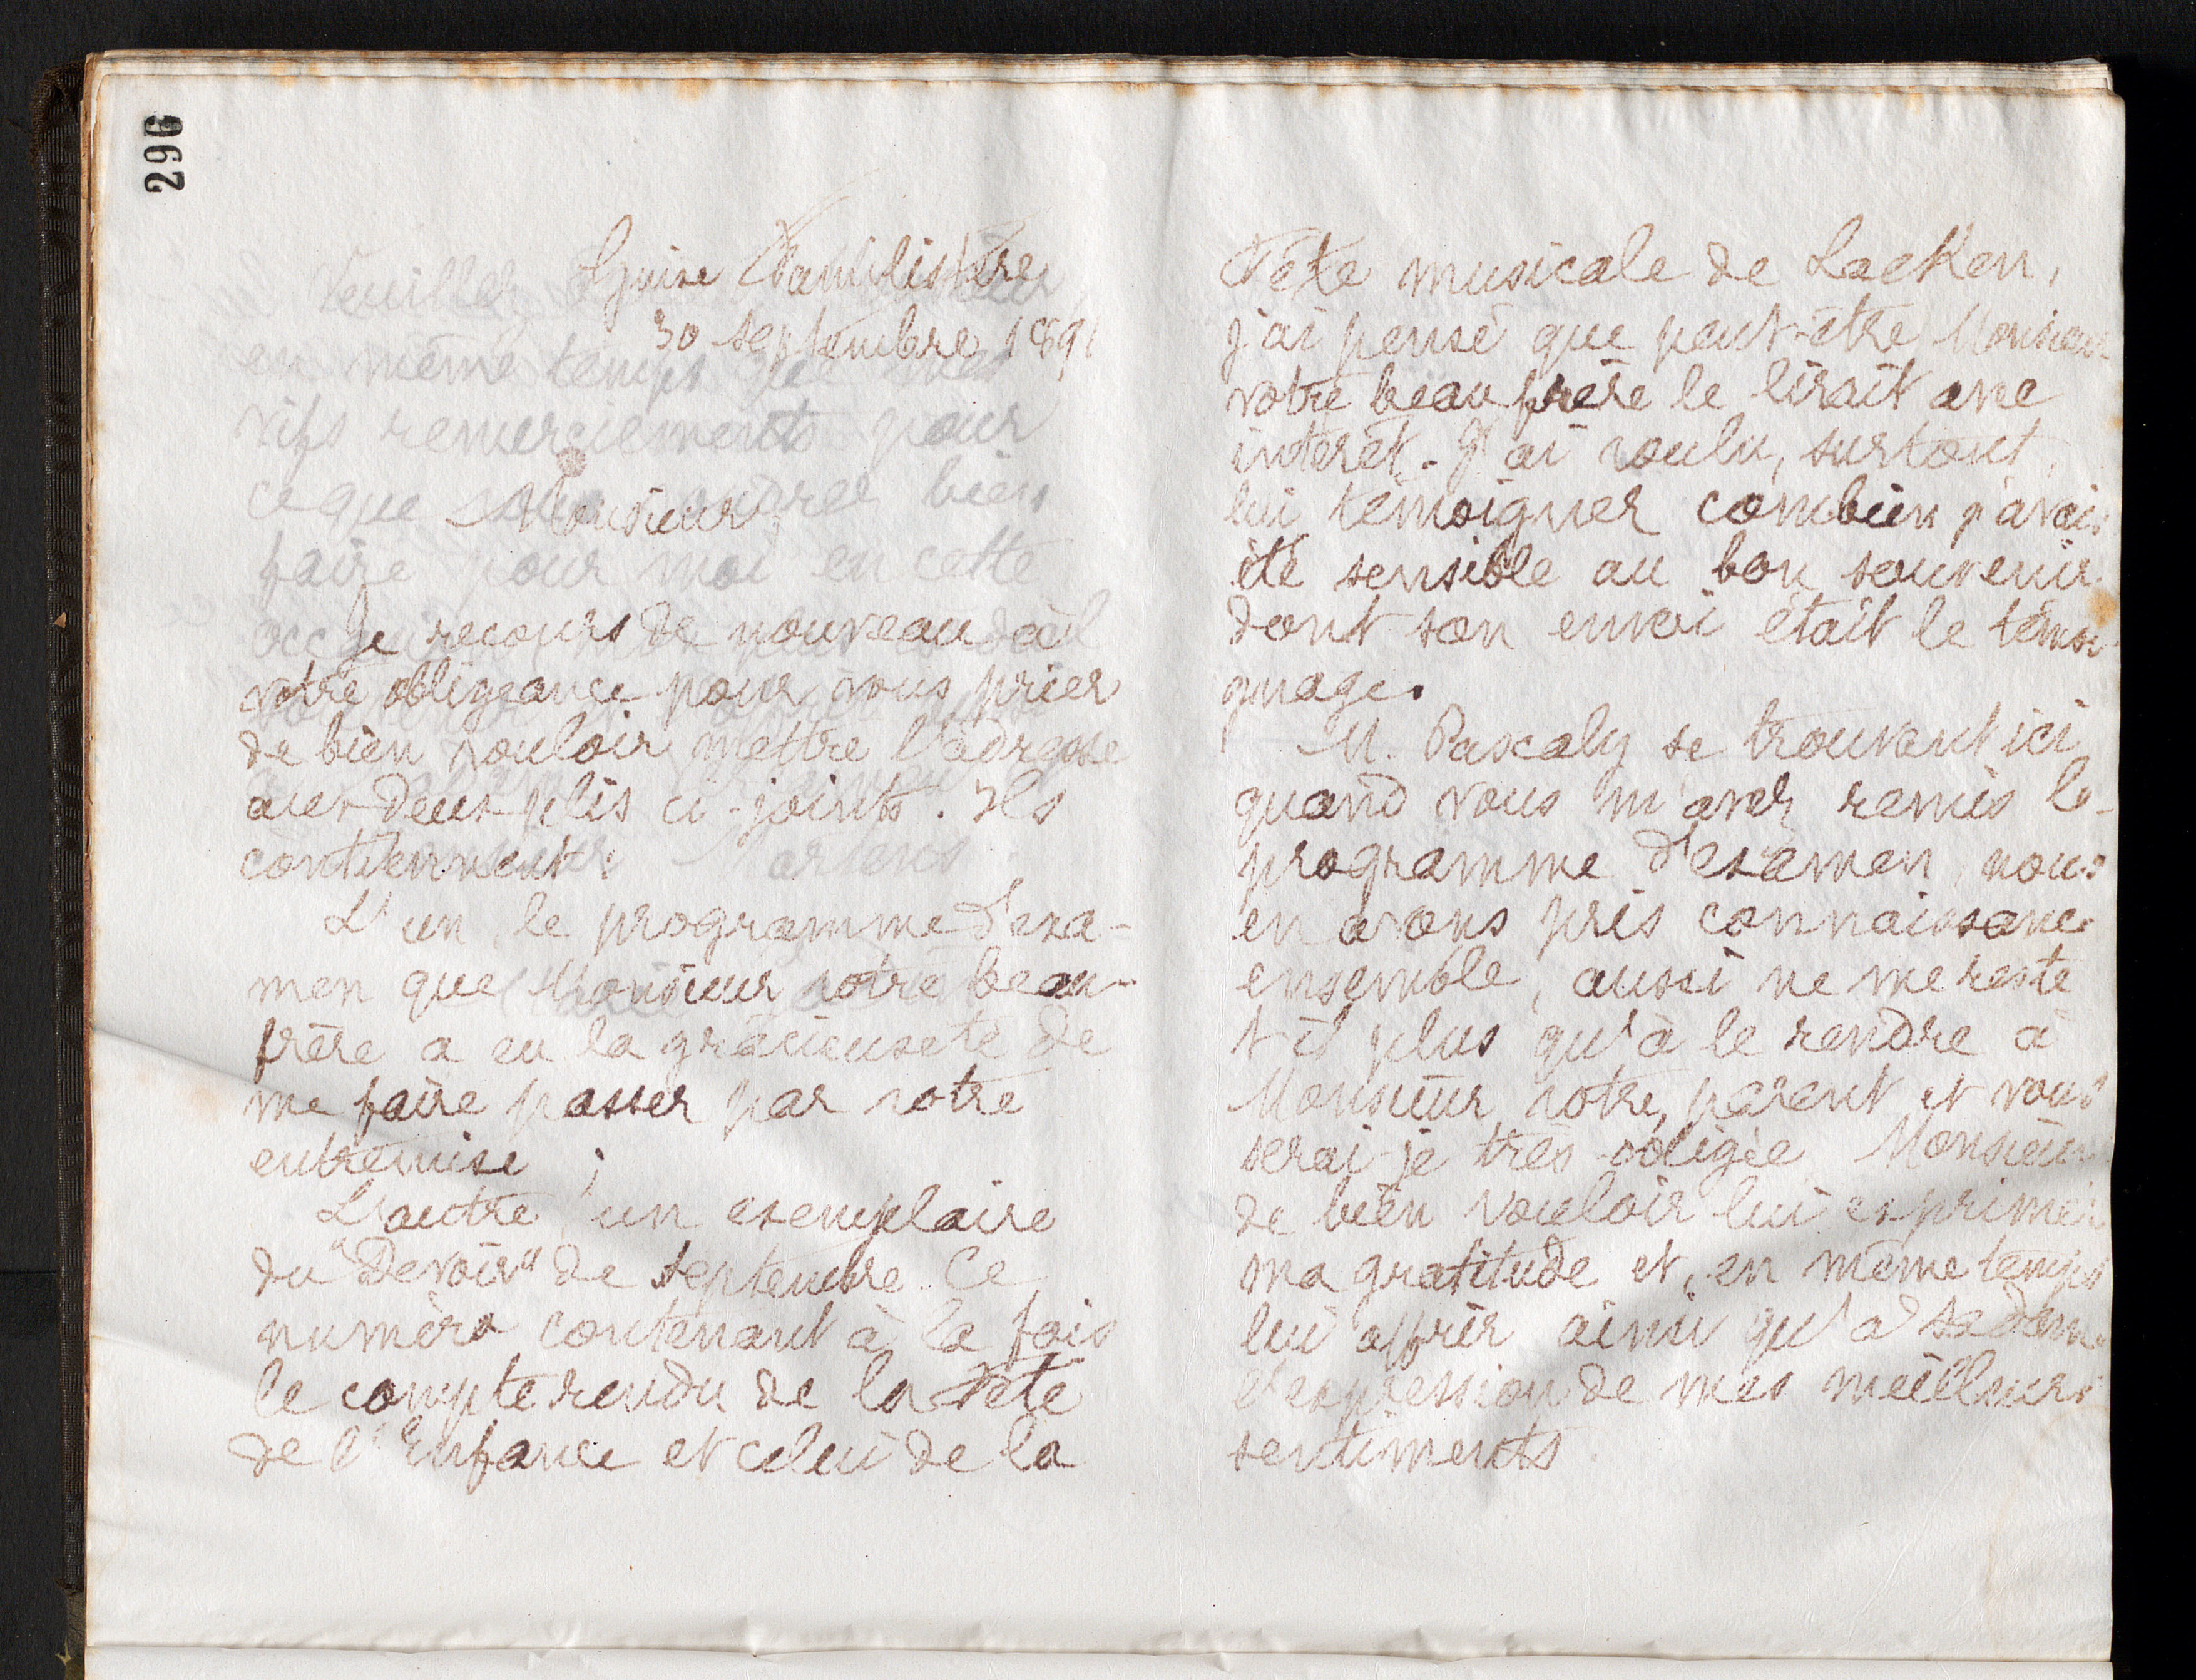 296
Guise Familistère
30 septembre 1891
Monsieur,
Je recours de nouveau à
votre obligeance pour vous prier
de bien vouloir mettre l'adresse
aux deux plis ci-joints. Ils
contiennent:
L'un, le programme d'exa-
men que Monsieur votre beau-
frère a eu la gracieuseté de
me faire passer par votre
entremise;
L'autre, un exemplaire
du "Devoir" de septembre. Ce
numéro contenant à la fois
le compte rendu de la Fête
de l'Enfance et celui de la
Fête musicale de Laeken,
j'ai pensé que peut-être Monsieur
votre beau frère le lirait avec
intérêt. J'ai voulu, surtout,
lui témoigner combien j'avais
été sensible au bon souvenir
dont son envoi était le témoi-
gnage.
M. Pascaly se trouvant ici
quand vous m'avez remis le
programme d'examen, nous
en avons pris connaissance
ensemble, aussi ne me reste
t-il plus qu'à le rendre à
Monsieur votre parent et vous
serai-je très obligée, Monsieur
de bien vouloir lui exprimer
ma gratitude et, en même temps
lui offrir ainsi qu'à sa dame
l'expression de mes meilleurs
sentiments.
Veuillez
en même temps que mes
vifs remerciements pour
ce que bien
faire pour moi en cette